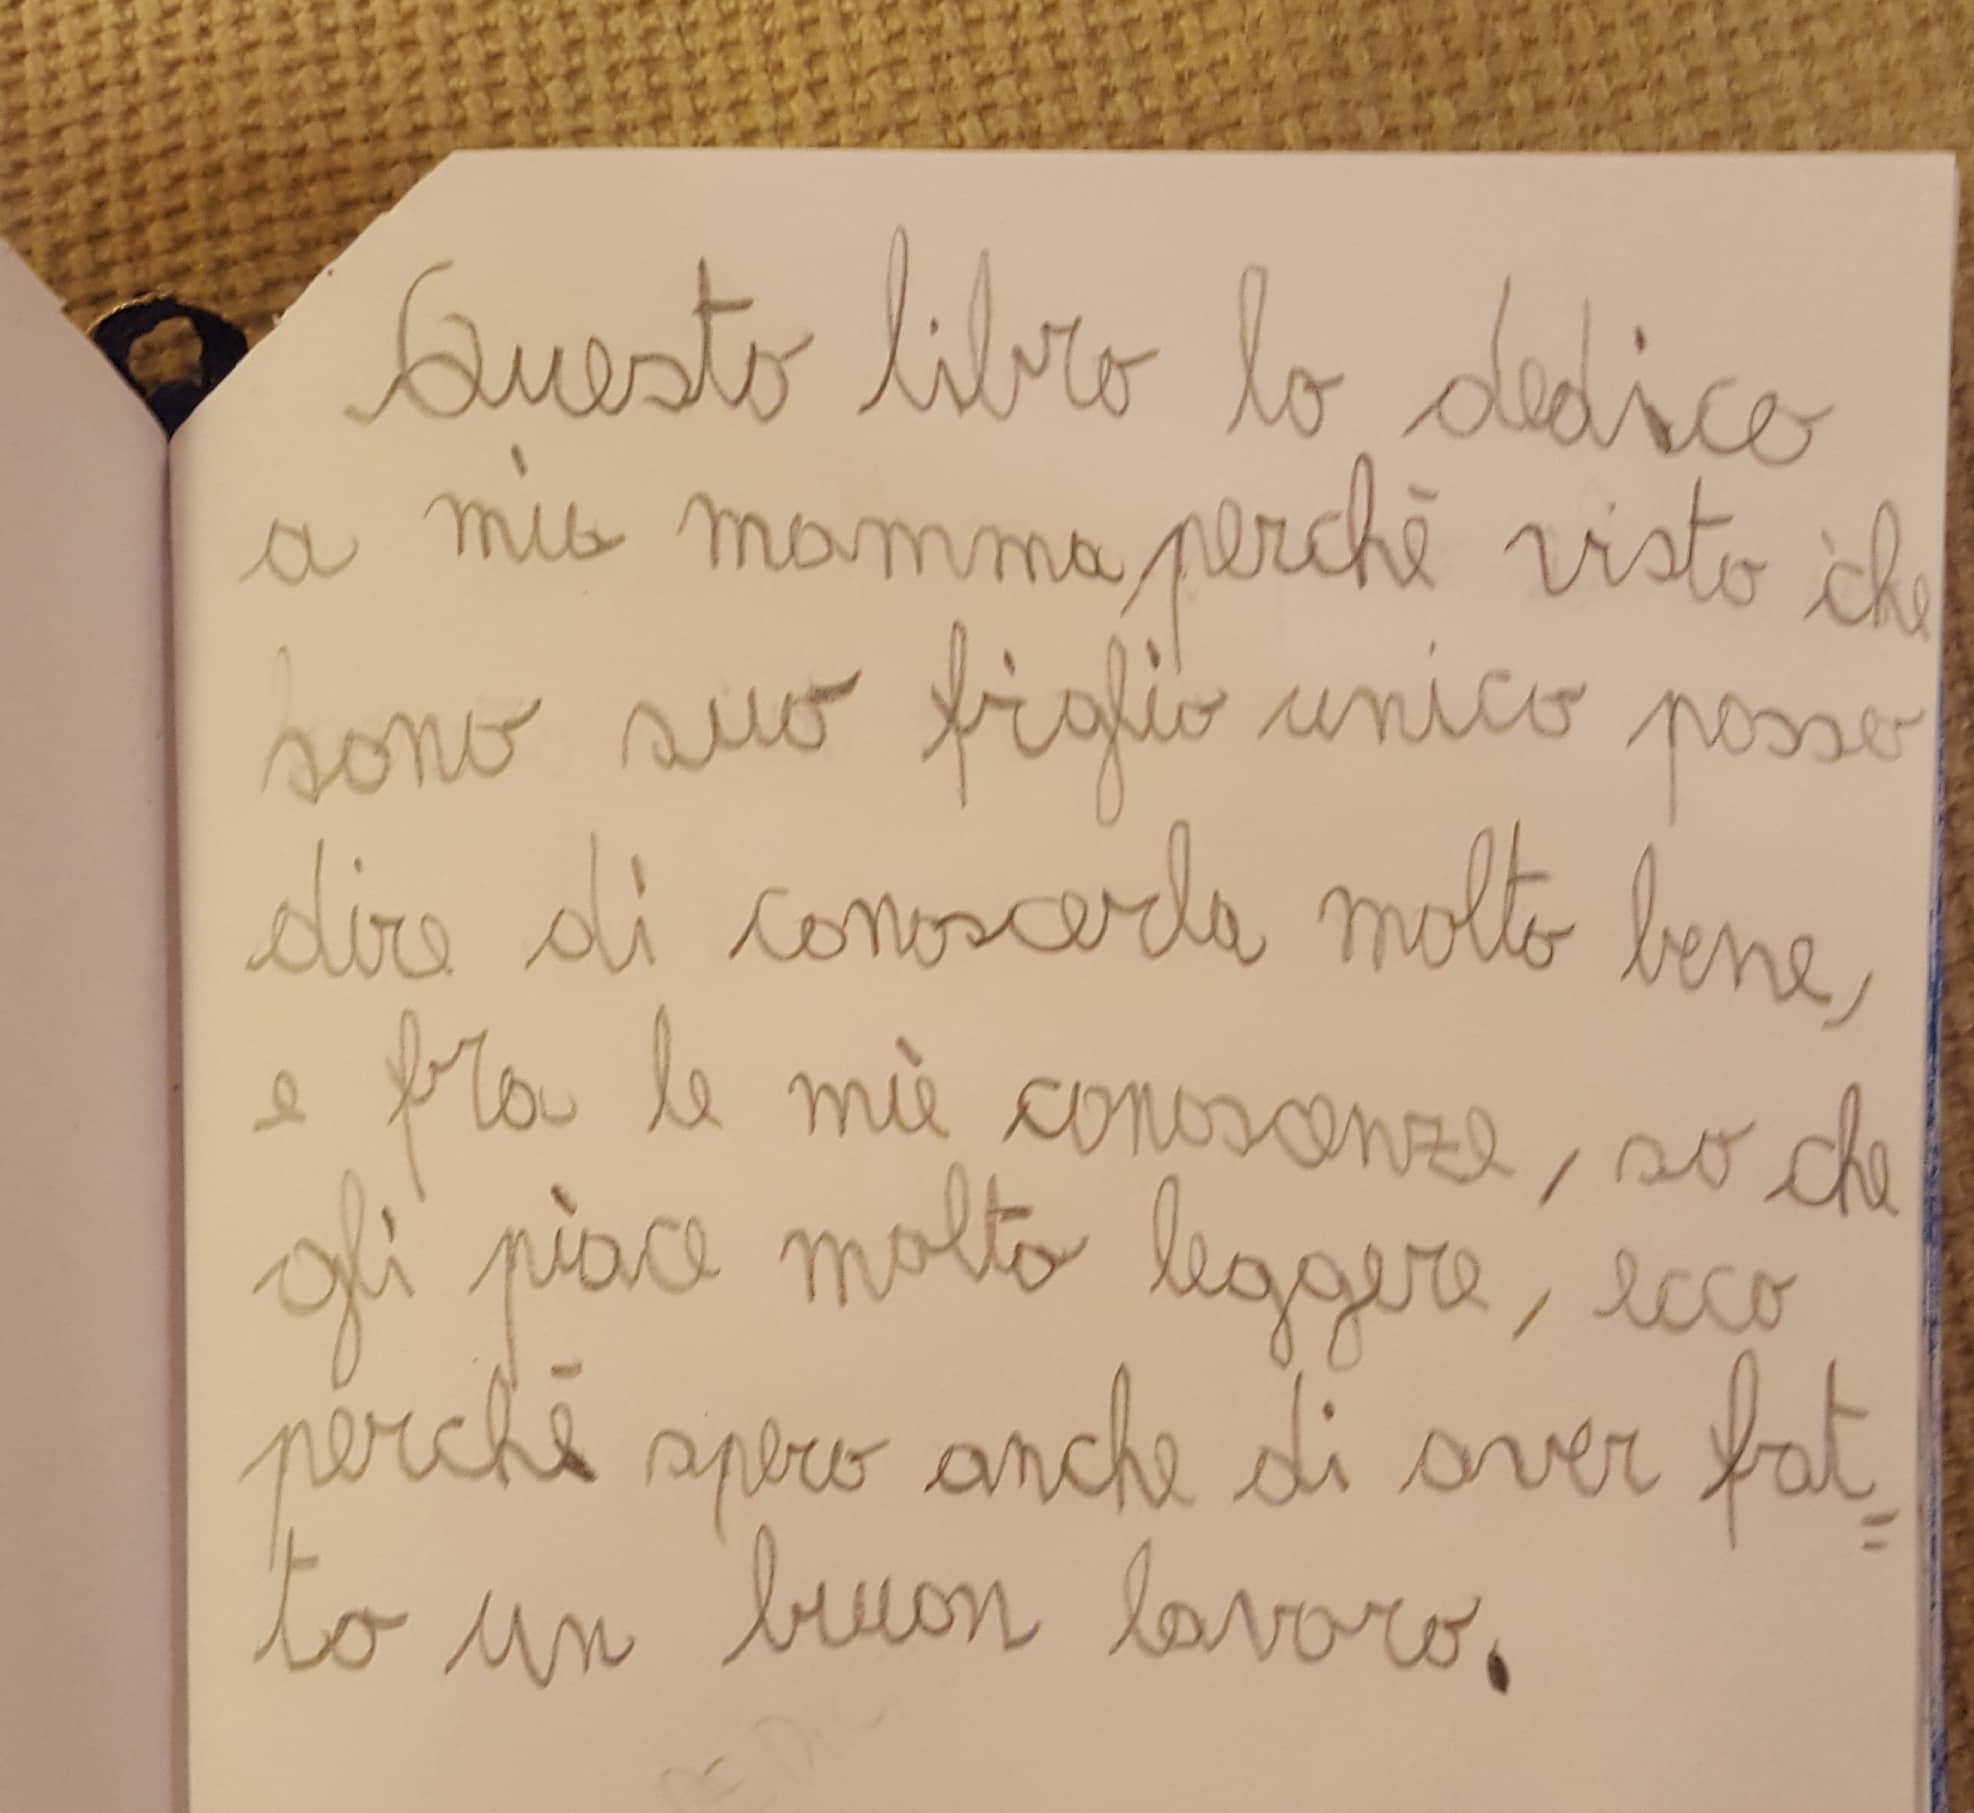 Questo libro lo dedico
a mia mamma, perchē visto che
sono suo figlio unico posso
dire di conoscerla molto bene,
e fra le mie conoscenze, so che
gli piace molto leggere, ecco
perchē spero anche di aver fat=
to un buon lavoro.